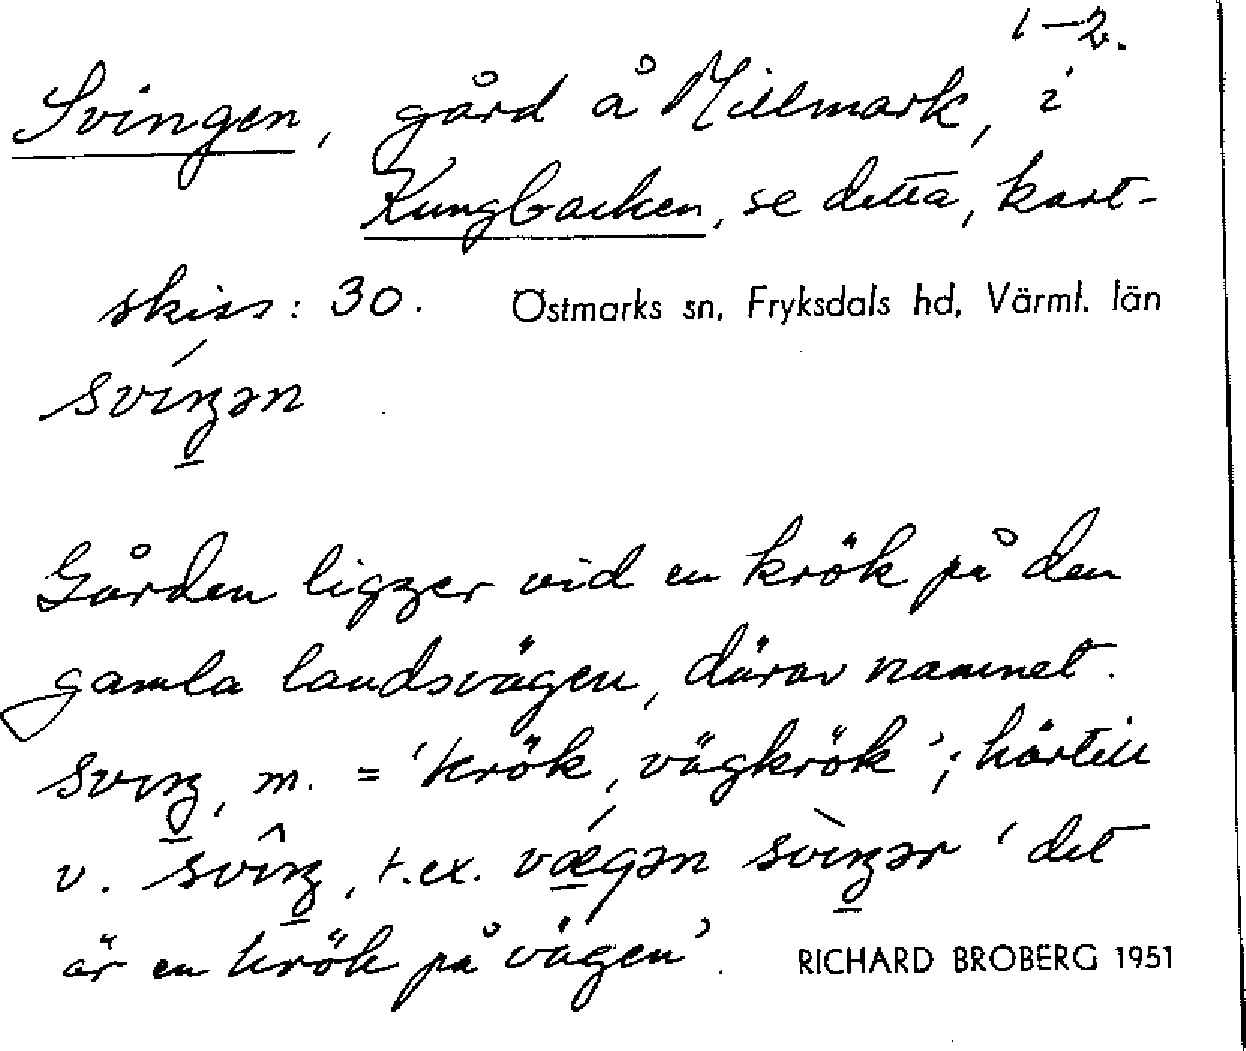 1–2.
Svingen, gård å Millmark, i
Kungbacken, se detta, kart-
skiss: 30. Östmarks sn, Fryksdals hd, Värml. län
svíŋən
Gården ligger vid en krök på den
gamla landsvägen, därav namnet.
sviŋ, m. = 'krök, vägkrök'; härtill
v. svîŋ, t.ex. vǽgən svìŋər 'det
är en krök på vägen'. RICHARD BROBERG 1951